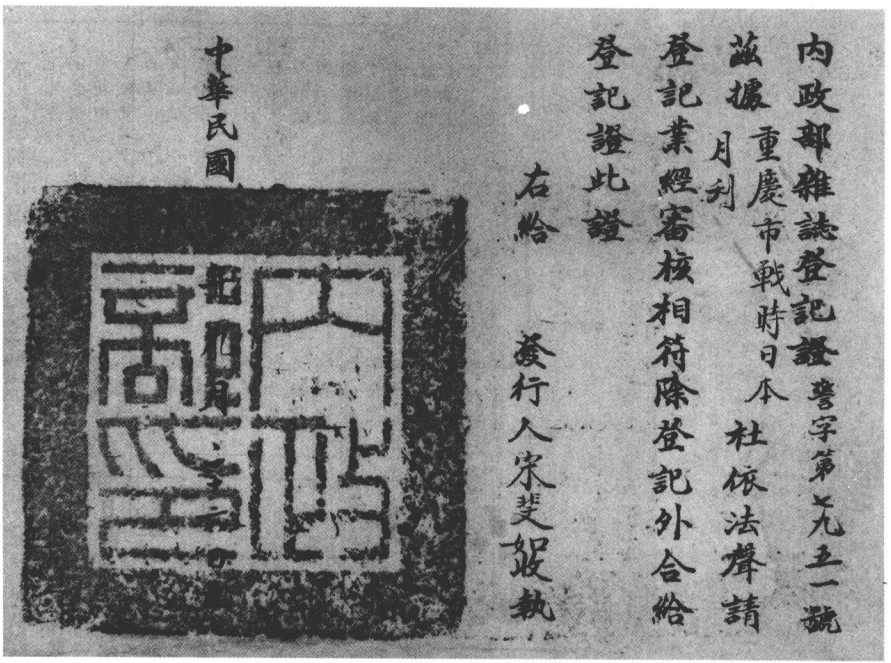 內政部雜誌登記證警字第七九五一號
茲據重慶市戰時日本月刊社依法聲請
登記業經審核相符除登記外合給
登記證此證
右給
發行人宋斐如收執
中華民國
九月
內政
部印